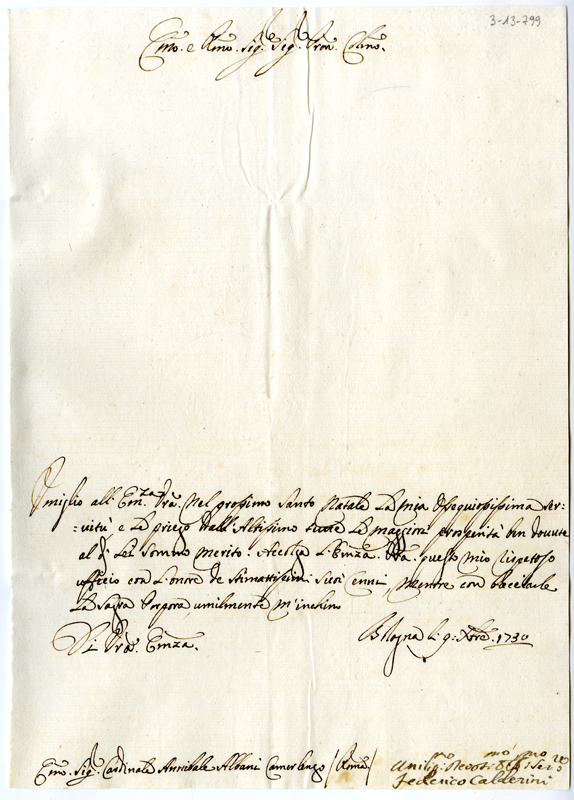 3-13-799
Emo. e Rmo. Sig.re Sig.re Pron. Colmo.
Umilio all' Em.za Vra. nel prossimo Santo Natale la mia Ossequiosissima ser=
=vitù e Le priego dall' Altissimo tutte le maggiori prosperità ben dovute
al di Lei sommo merito. Accolga l'Emza. Vra. questo mio rispettoso
ufficio con l'onore de stimatissimi suoi cenni, mentre con bacciarle
La Sagra Porpora umilmente m'inchino
Di Vra. Emza.
Bologna li 9: Xbre. 1730
Emo. Sig.r Cardinale Annibale Albani Camerlengo /Roma/
Umil.mo Devot.mo Obb.mo Ser.re
Federico Calderini